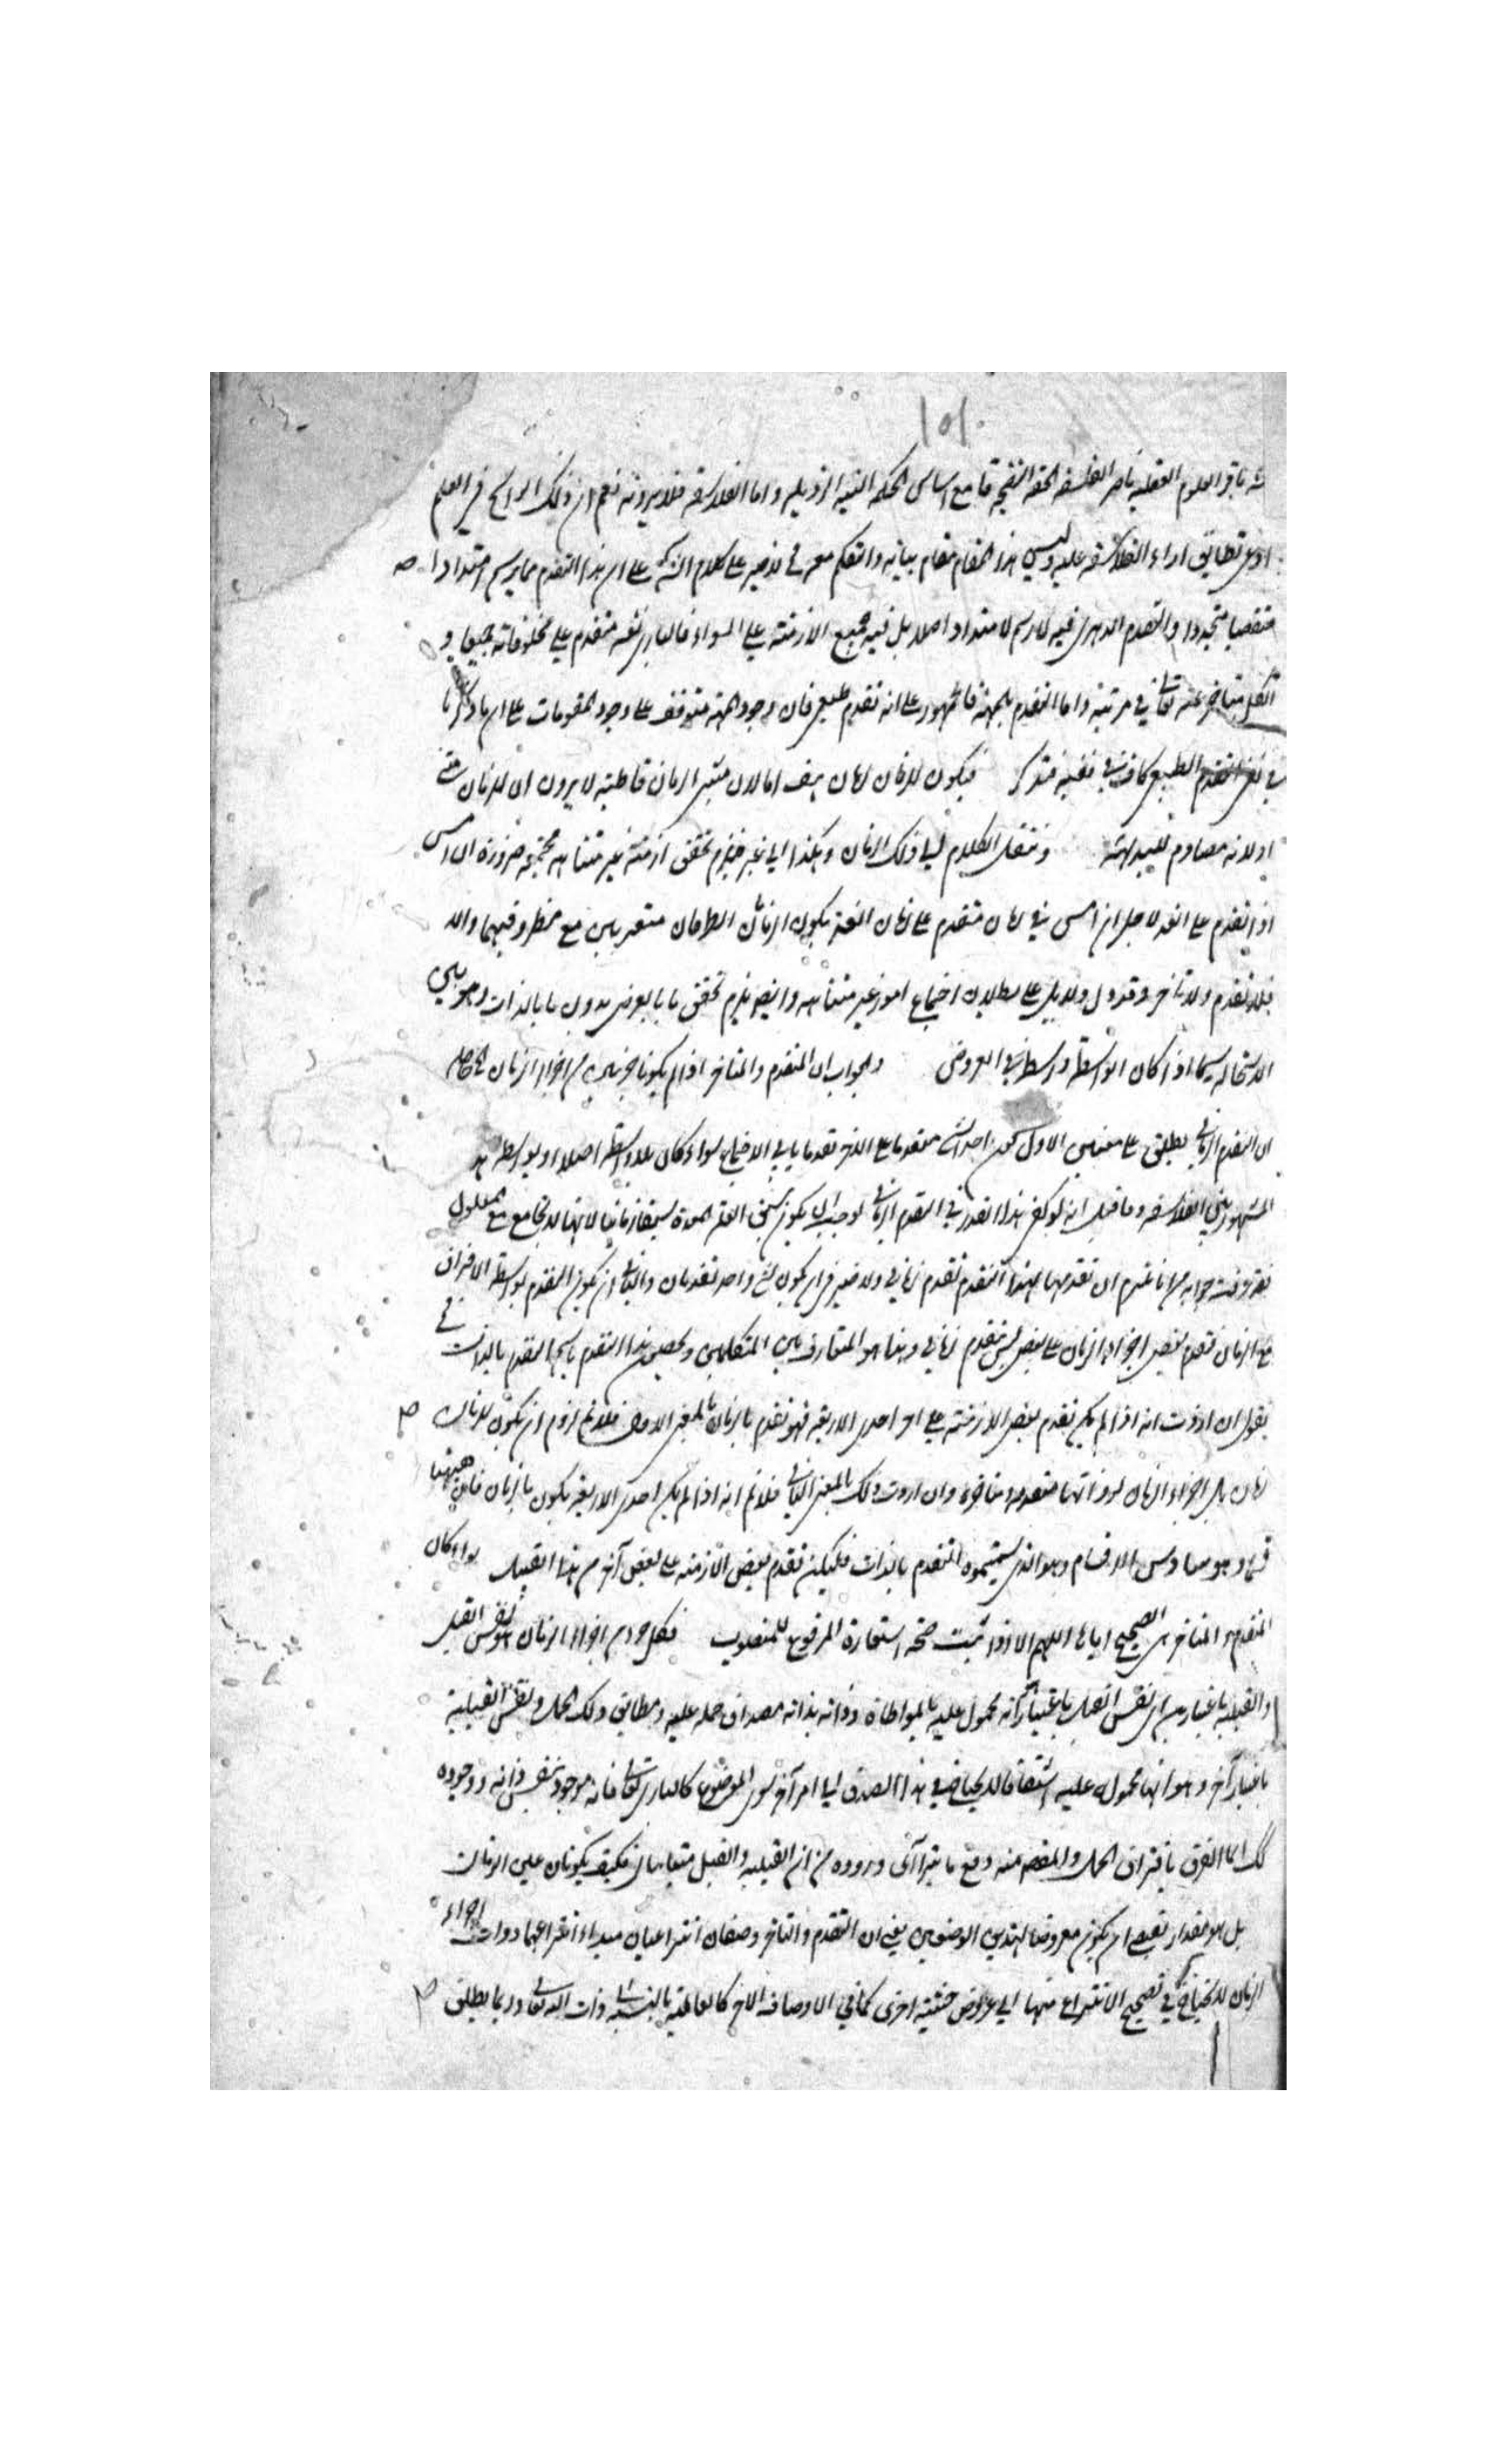 ١٥١
باقر العلوم العقلية ناصر الفلسفة الحقة النضيجة قامع اساس الحكمة النية الرذيلة واما الفلاسفة فلا يرونه نعم ان ذلك الراسخ في العلم
ادعى تطابق اراء الفلاسفة عليه وليس هذا المقام مقام بيانه والتكلم معه في على كلام على ان هذا التقدم مما يرسم امتدادا
متقضيا متجددا والتقدم الدهري فيه لا رسم لامتداد اصلا بل فيه جميع الازمنة على السواء فالباري متقدم على مخلوقاته جميعا و
الكل متاخر عنه تعالى في مرتبة واما التقدم بالمهية فالمشهور على انه تقدم طبعي فان وجود المهية متوقف على وجود المقومات على ان ما ذكرنا
في التقدم الطبيعي كاف في نفيه فتذكر فيكون للزمان زمان هف اما لان مثبتي الزمان قاطبة لا يرون ان للزمان
او لانه مصادم للبداهة وننقل الكلام الى ذلك الزمان وهكذا الى غير فيلزم تحقق ازمنة غير متناهية مجتمعة ضرورة ان امس
اذا تقدم على الغد لاجل ان امس في زمان متقدم على زمان الغد يكون الزمانان الطرفان متعريين مع مظروفيهما والا
فلا تقدم ولا تاخر وقد دل على بطلان اجتماع امور غير متناهية وايضا يلزم تحقق ما بالعرض بدون ما بالذات وهو بين
الاستحالة سيما اذا كان الواسطة واسطة في العروض والجواب ان المتقدم والمتاخر اذا لم يكونا جزئين من اجزاء الزمان الحاصل
ان التقدم الزماني يطلق على معنيين الاول كون احد الشيئين متقدما على الاخر تقدما يابى الاجتماع سواء كان بلا واسطة اصلا او بواسطة هذا
المشهور بين الفلاسفة وما قيل انه لو كفى هذا القدر في التقدم الزماني لوجب ان يكون سبق العلة المعدة سبقا زمانيا لانها لا تجامع مع المعلول
فقد عرفت جوابه من انا نلتزم ان تقدمها بهذا التقدم تقدم زماني ولا ضير في ان يكون لشيء واحد تقدمان والثاني ان يكون التقدم بواسطة الاقتران
مع الزمان فتقدم بعض اجزاء الزمان على بعض ليس بتقدم زماني وهذا هو المتعارف بين المتكلمين ويخصون هذا التقدم باسم التقدم بالذات
نقول ان اردت انه اذا لم يكن تقدم بعض الازمنة على احد الاربعة فهو تقدم بالزمان بالمعنى الاول فلا نم لزوم ان يكون للزمان
زمان بل اجزاء الزمان لذواتها متقدمة ومتاخرة وان اردت ذلك بالمعنى الثاني فلا نم انه اذا لم يكن احدى الاربعة يكون بالزمان فان ههنا
قسما وهو سادس الاقسام وهو الذي سميتموه التقدم بالذات فليكن تقدم بعض الازمنة على بعض آخر من هذا القبيل سواء كان
المتقدم والمتاخر الصحيح اياها اللهم الا اذا ثبت صحة استعارة المرفوع للمنصوب فكل جزء من اجزاء الزمان نفس القبل
والقبلية باعتبارين اي نفس القبل باعتبار انه محمول عليه بالمواطاة وذاته بذاته مصداق حمله عليه ومطابق ذلك الحمل ونفس القبلية
باعتبار آخر وهو انها محمولة عليه اشتقاقا لا يحتاج في هذا الصدق الى امر آخر سوى الموضوع كالباري تعالى فانه موجود بنفس ذاته ووجوده
كك الفرق بافتراق الحمل والمقصود منه دفع ما يتراآى وروده من ان القبلية والقبل متباينان فكيف يكونان عين الزمان
بل هو مقدار يقتضي ان يكون معروضا لهذين الوصفين يعني ان التقدم والتاخر وصفان انتزاعيان مبدأ انتزاعهما ذوات اجزاء
الزمان لا يحتاج في تصحيح الانتزاع منها الى عروض حيثية اخرى كما في الاوصاف الاخر كالعالمية بالنسبة الى ذات الله تعالى وربما يطلق